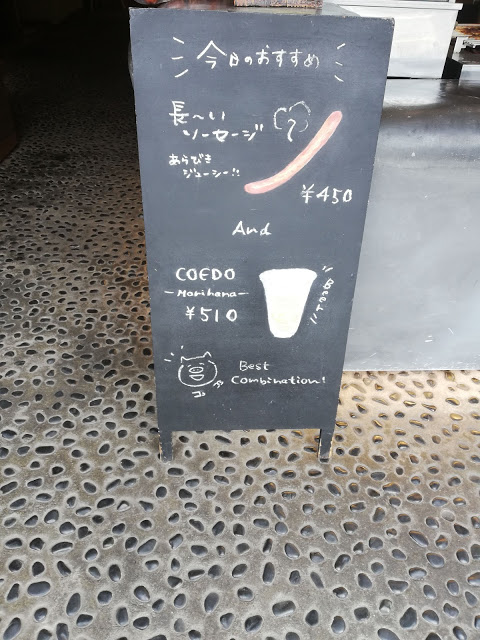 今日のおすすめ
長〜い
ソーセージ
あらびき
ジューシー!!
¥450
And
COEDO
-Marihana-
¥510
Beer
Best
Combination!